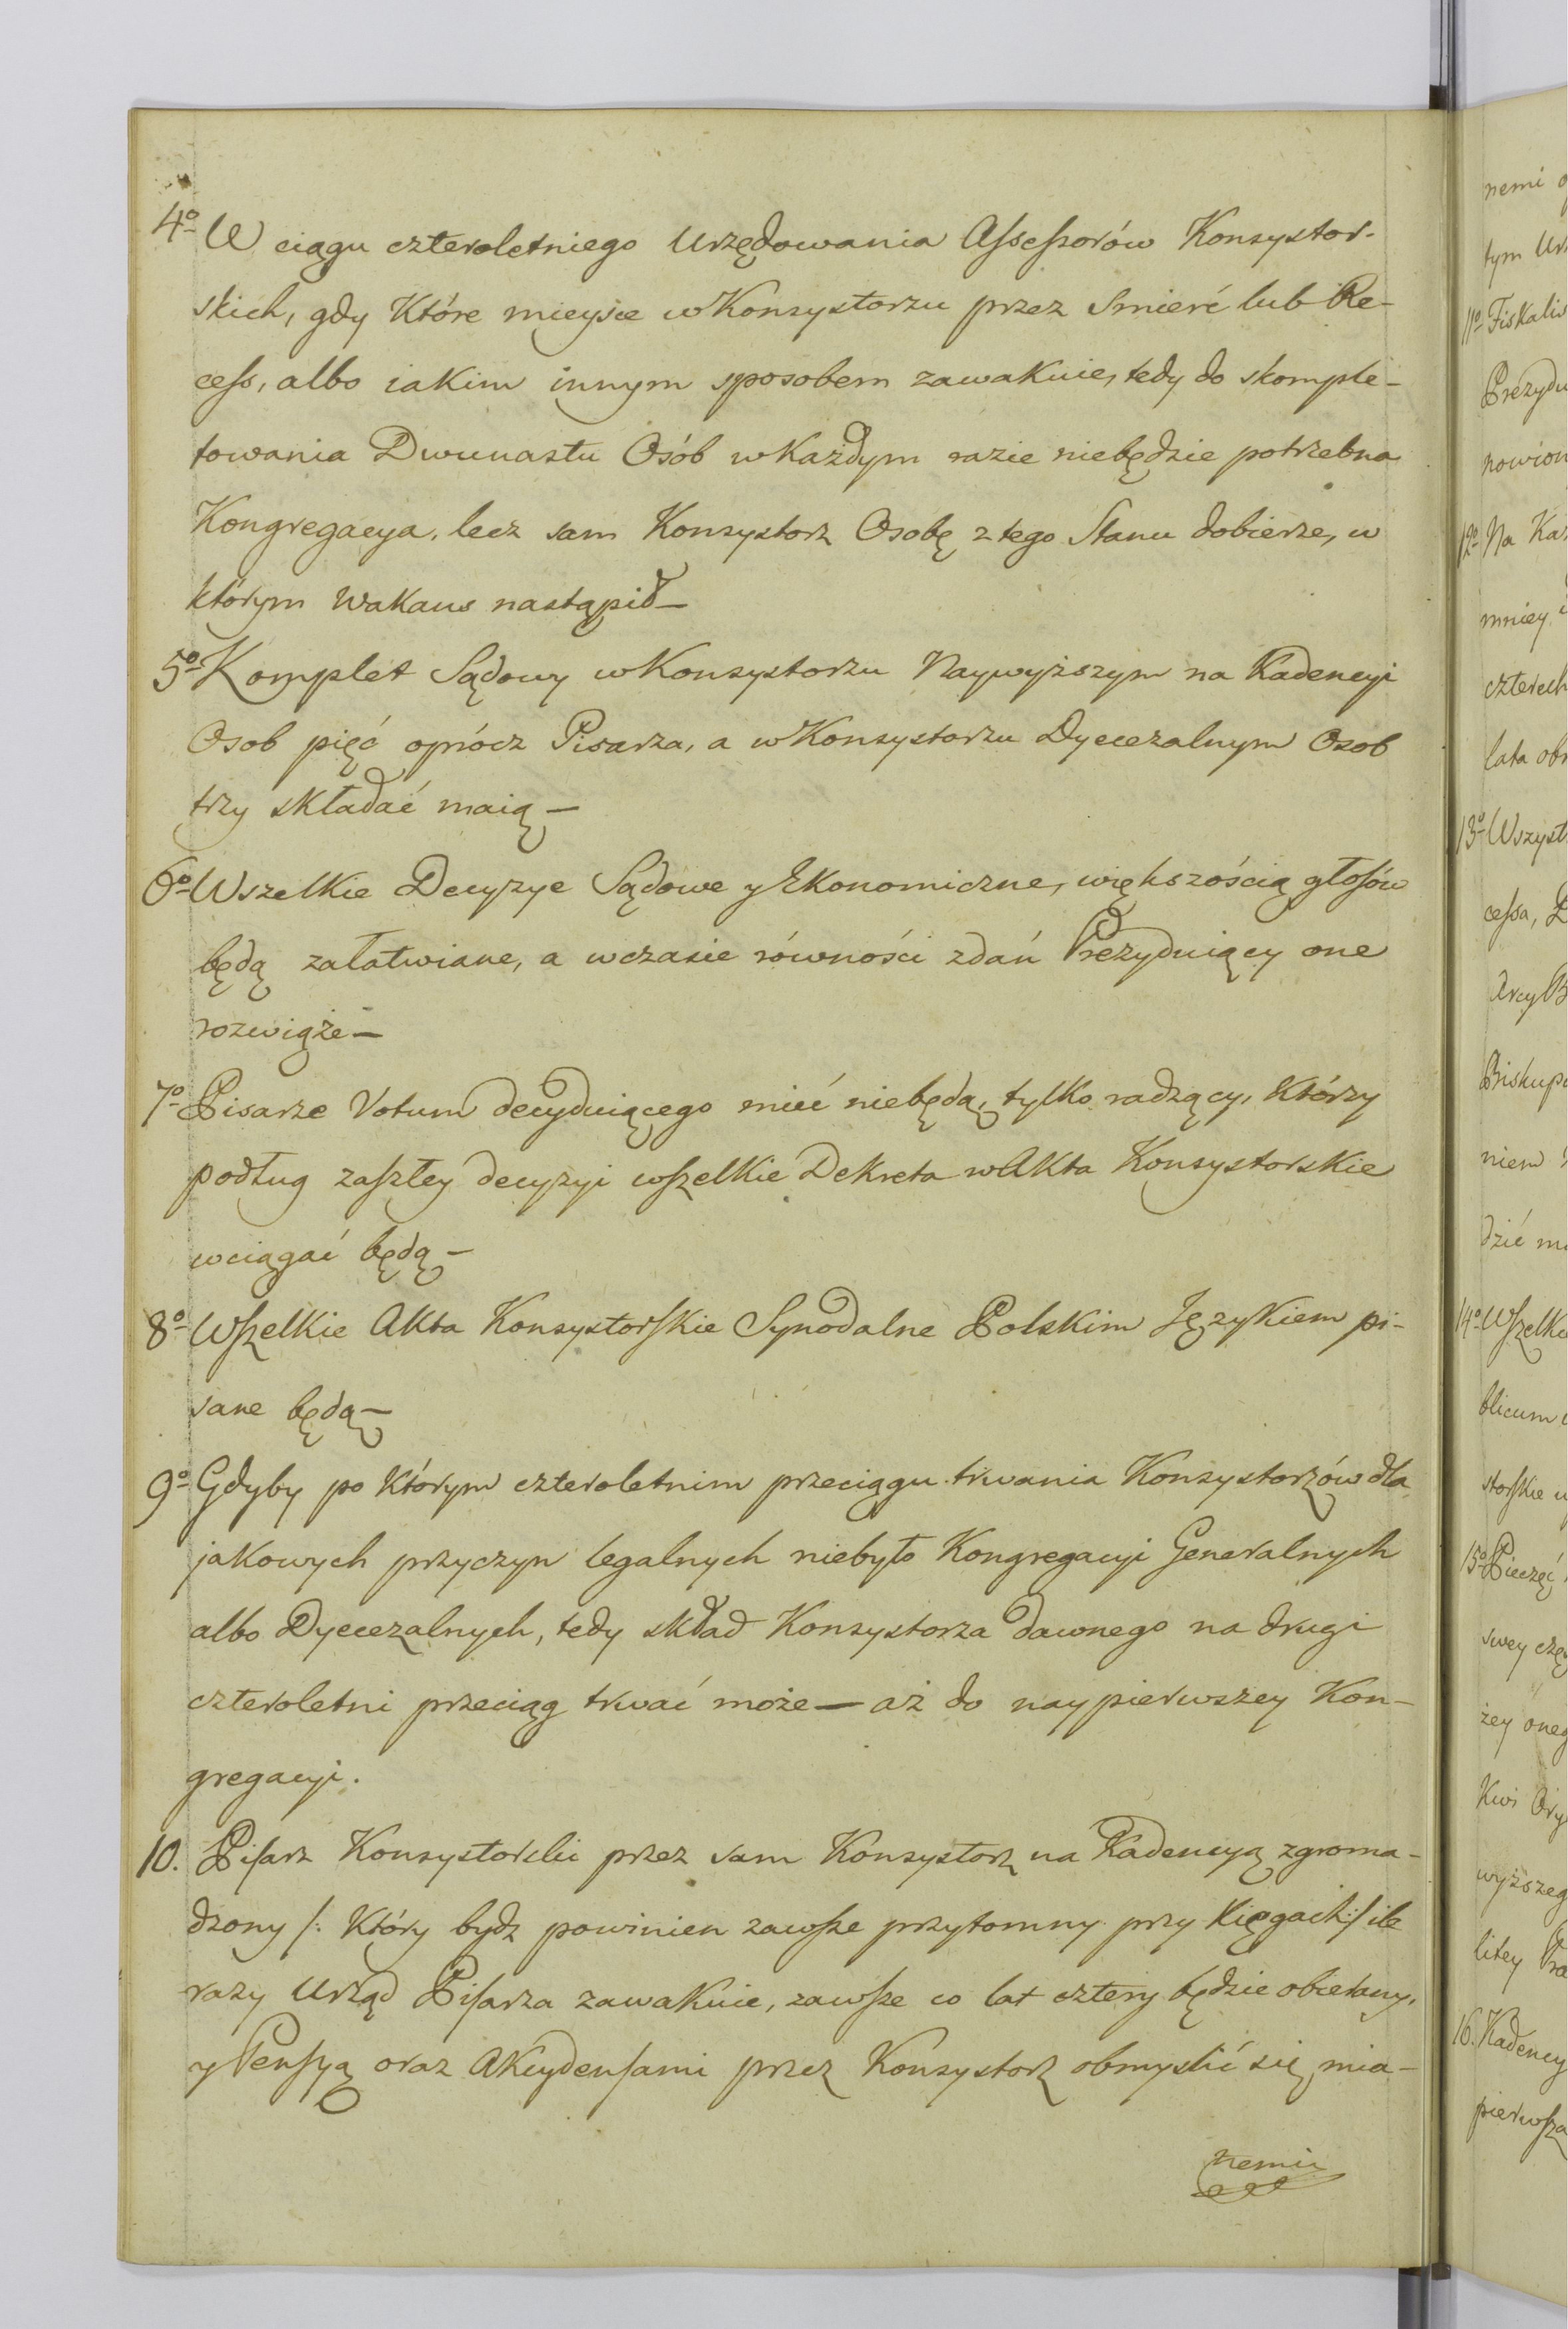 4º W ciągu czteroletniego Urzędowania Assessorów Konsystor-
skich, gdy Które mieysce w Konsystorzu przez Smierć lub Re-
cess, albo iakim innym sposobem zawakuie, tedy do skomple-
towania Dwunastu Osób w Każdym razie niebędzie potrzebna
Kongregacya, lecz sam Konsystorz Osobę z tego Stanu dobierze, w
którym Wakans nastąpił—
5º Komplet Sądowy w Konsystorzu Naywyższym na Kadencyi
Osob pięć oprócz Pisarza, a w Konsystorzu Dyecezalnym Osob
trzy składać maią—
6º Wszelkie Decyzye Sądowe y Ekonomiczne, większością głosów
będą załatwiane, a wczasie równości zdań Prezyduiący one
rozwiąże—
7º Pisarze Votum decyduiącego mieć niebędą, tylko radzący, Którzy
podług zaszłey decyzyi wszelkie Dekreta w Akta Konsystorskie
wciągać będą—
8º Wszelkie Akta Konsystorskie Synodalne Polskim Językiem pi-
sane będą—
9º Gdyby po Którym czteroletnim przeciągu trwania Konsystorzów dla
jakowych przyczyn legalnych niebyło Kongregacyi Generalnych
albo Dyecezalnych, tedy skład Konsystorza dawnego na drugi
czteroletni przeciąg trwać może— aż do naypierwszey Kon-
gregacyi.
10. Pisarz Konsystorski przez sam Konsystorz na Kadencyą zgroma-
dzony /: Który bydz powinien zawsze przytomny przy Xięgach :/ ile
razy Urząd Pisarza zawakuie, zawsze co lat cztery będzie obierany,
y Pensyą oraz Akcydensami przez Konsystorz obmyslić się mia-
nemi
nemi
tym
11º Fiskalis
12º Na
mniey
czterech
lata
13º
cessa,
niem
dzić
14º
blicum
storskie
15º Pieczęć
swey
żey
litey
16.